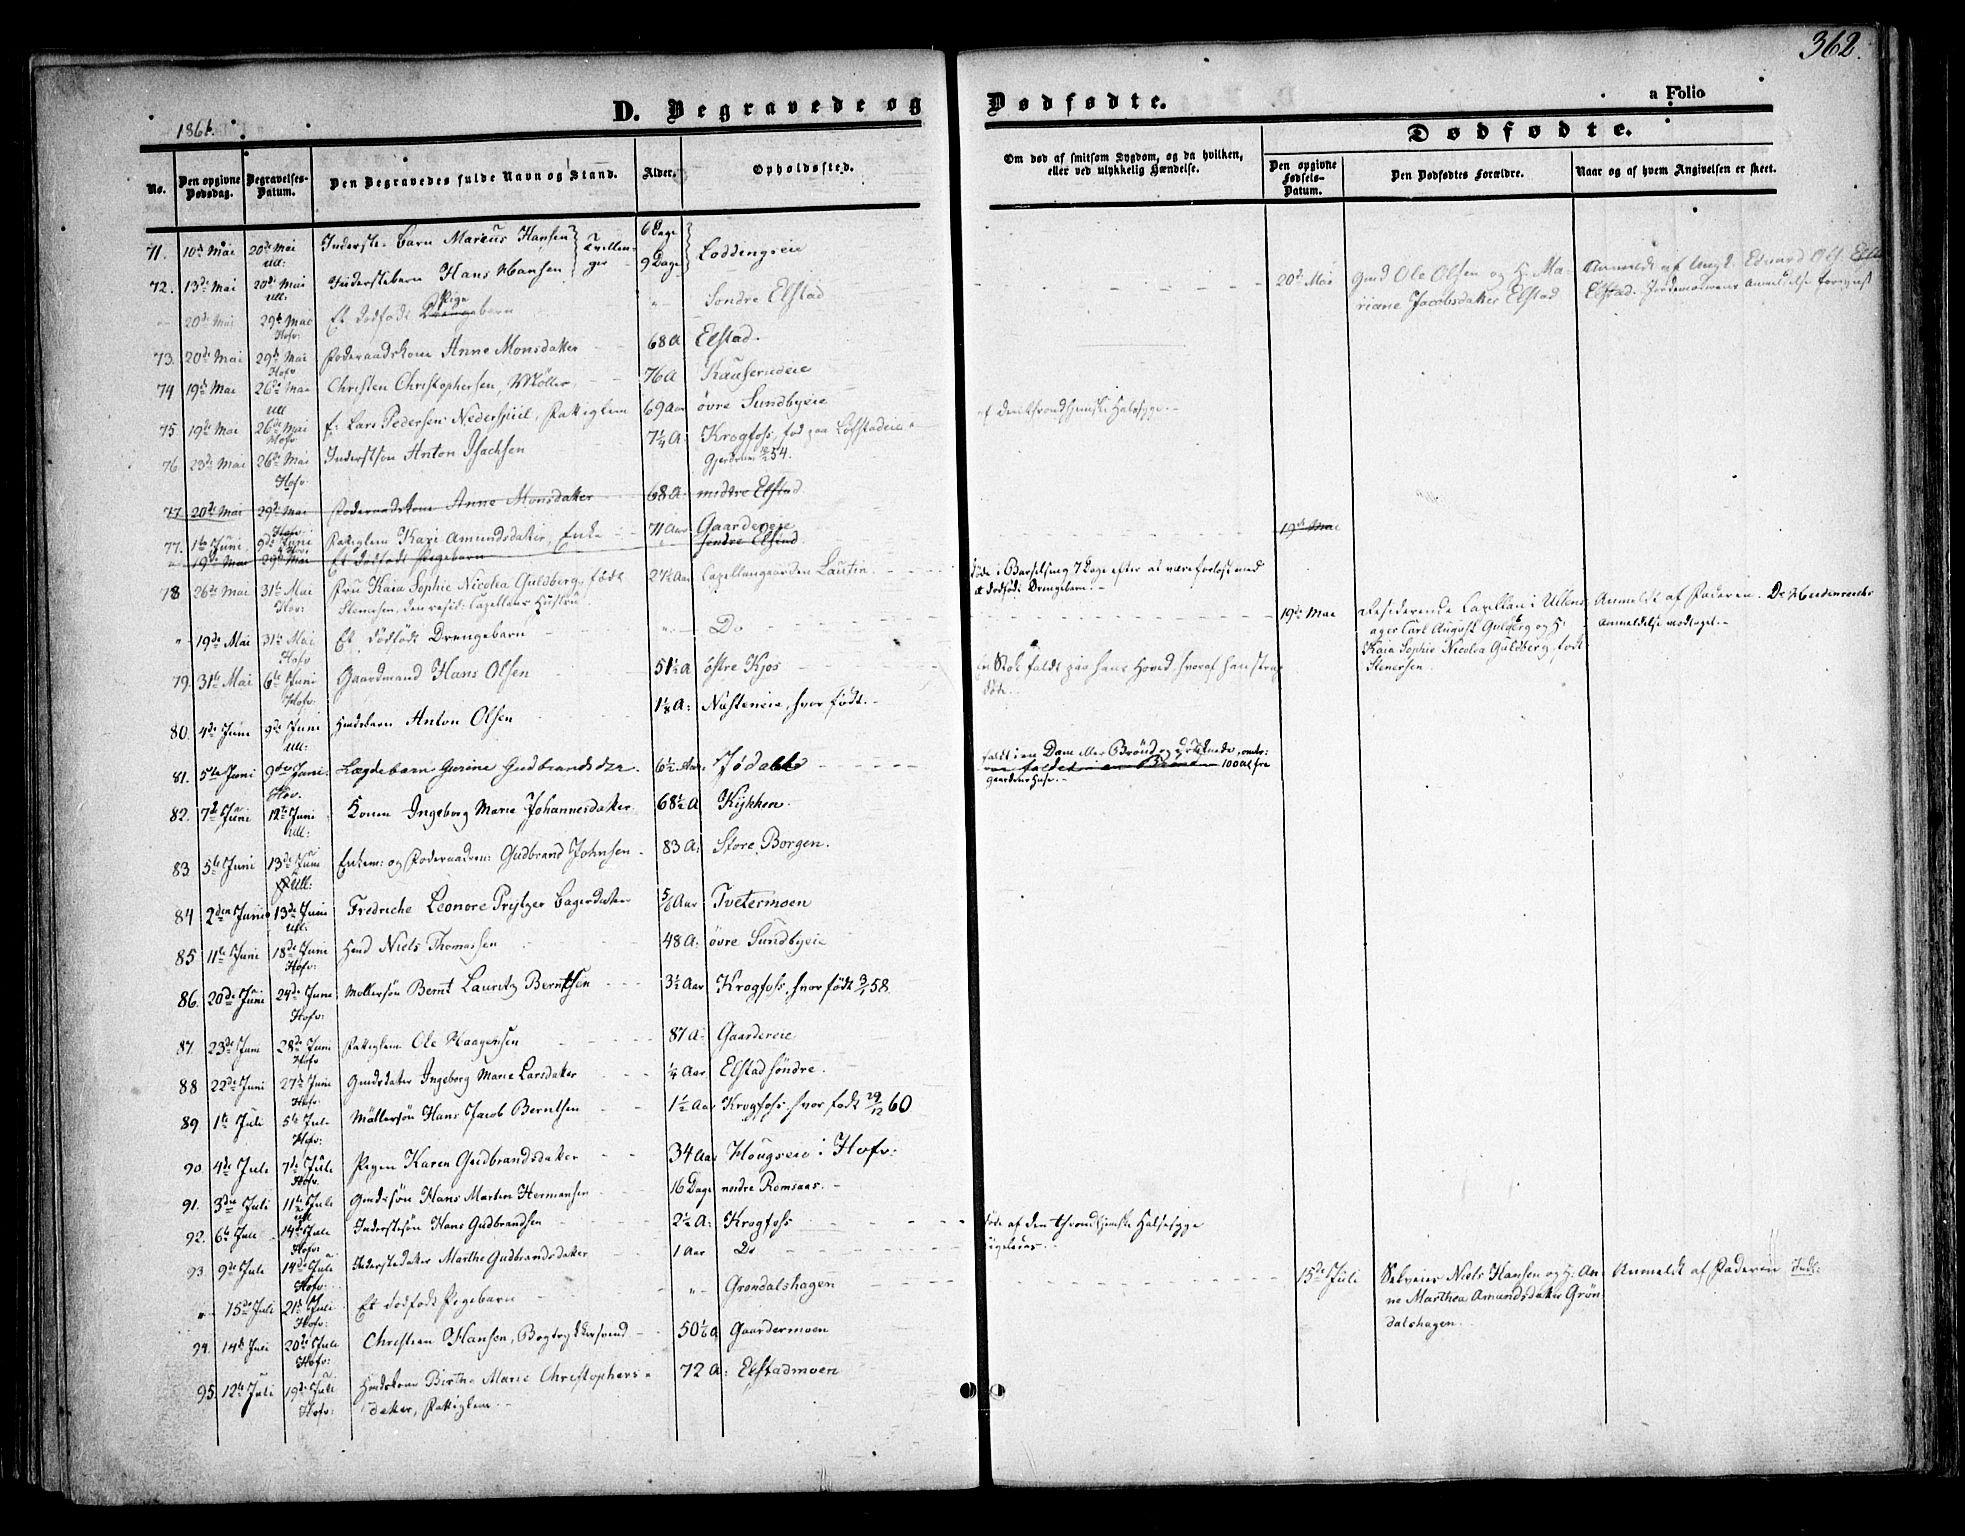 362.
D. Begravede og Dødfødte.
a Folio
1861.
Dødfødte.
No. Den opgivne Dødsdag. Begravelses-Datum. Den Begravedes fulde Navn og Stand. Alder. Opholdssted. Om død af smitsom Sygdom, og da hvilken, eller ved ulykkelig Hændelse. Den opgivne Fødsels-Datum. Den Dødfødtes Forældre. Naar og af hvem Angivelsen er skeet.
71. 10de Mai 20de Mai Ull: Inderste-barn Marcus Hansen Tvillinger 6 Dage Loddengseie
72. 13de Mai 20de Mai Ull: Inderstebarn Hans Hansen 9 Dage
" 20de Mai 29de Mai Hofv: Et dødfødt Pige Drengebarn " Søndre Elstad 20de Mai Gmd Ole Olsen og H. Mariane Jacobsdatter Elstad Anmeldt af Ungk. Edvard Ols. Elstad. Jordemoderens Anmeldelse foreviist
73. 20de Mai 29de Mai Hofv Føderaadskone Anne Monsdatter 68 A Elstad.
74 19de Mai 26de Mai Ull Christen Christophersen, Møller 76 A Kauserudeie
75 19de Mai 26de Mai Hofv F: Lars Pedersen Nederspiil, Fattiglem 69 Aar øvre Sundbyeie
76. 23de Mai 26de Mai Hofv Inderstsøn Anton Isachsen 7¼ A: Krogfoss, fød paa Løfstadeie Gjerdrum 54. af den throndhjemske Halssyge.
77. 20de Mai 29de Mai Føderaadskone Anne Monsdatter 68 A. midtre Elstad
77. 1ste Juni 9de Juni Hofv Fattiglem Kari Amundsdatter, Enke 71 Aar Gaardereie
" 19de Mai 29de Mai Et dødfødt Pigebarn søndre Elstad 19de Mai
78 26de Mai 31te Mai Hov: Fru Kaia Sophie Nicolea Guldberg, født Stenersen, den resid: Capellans Hustru. 27½ Aar Capellangaarden Lautin døde i Barselseng 7 Dage efter at være forløst med et dødfødt Drengebarn.
" 19de Mai 31te Mai Hofv Et dødfødt Drengebarn " Do 19de Mai Residerende Capellan i Ullensager Carl August Guldberg og H: Kaia Sophie Nicolea Guldberg, født Stenersen. Anmeldt af Faderen. Dr Heidenreichs Anmeldelse modtaget.
79. 31te Mai 6te Juni Hofv. Gaardmand Hans Olsen 51½ A østre Kjos En Stok faldt paa hans Hoved, hvoraf han strax døde.
80. 4de Juni 9de Juni Ull: Husbarn Anton Olsen 1⅛ A: Næsteneie, hvor født.
81. 5te Juni 9de Juni. Hov. Lægdebarn Gurine Gudbrandsdtr. 6½ Aar Jødahl faldt i en Dam eller Brønd og druknede, omtr: var faldet i en Brønd 100 Al fra Gaardens Huse.
82. 7de Juni 12te Juni Ull: Konen Ingeborg Marie Johannesdatter 68½ A Kykken.
83. 5te Juni 13de Juni Ull: Enkem: og Føderaadsm: Gudbrand Johnsen 83 A: Store Borgen.
84 2den Juni 13de Juni Ull: Fredriche Leonore Prytzer Bagerdatter 5/6 Aar Tvetermoen
85 11te Juni 18de Juni Hofv: Hmd Niels Thomassen 48 A: øvre Sundbyeie
86. 20de Juni 24de Juni Hofv: Møllersøn Bernt Lauritz Berntsen 3½ Aar Krogfoss, hvor født 58.
87. 23de Juni 28de Juni Hofv Fattiglem Ole Haagensen 87 A: Gaardereie
88 22de Juni 27de Juni Hofv: Gmdsdatter Ingeborg Marie Larsdatter ¼ Aar Elstad søndre.
89 1ste Juli 5te Juli Hofv: Møllersøn Hans Jacob Berntsen 1½ Aar Krogfoss, hvor født 29/12 60
90. 4de Juli 7de Juli Hofv. Pigen Karen Gudbrandsdatter 34 Aar Hougseie i Hofv:
91. 3die Juli 11te Juli Ull Gmdssøn Hans Martin Hermansen 16 Dage nordre Romsaas.
92. 6te Juli 14de Juli Hofv: Inderstesøn Hans Gudbrandsen 2½ A: Krogfoss døde af den throndhjemske Halssyge
93. 9de Juli 14de Juli Hofv: Inderstedatter Marthe Gudbrandsdatter 1 Aar Do
" 15de Juli 21de Juli Hofv: Et dødfødt Pigebarn " Grøndalshagen 15de Juli Selveier Niels Hansen og H: Anne Marthea Amundsdatter Grøndalshagen. Anmeldt af Faderen
94. 14de Juli 20de Juli Hofv: Christian Hansen, Bogtrykkersvend 50 A Gaardermoen
95. 12te Juli 19de Juli Hofv: Huuskone Birthe Marie Christophersdatter, Fattiglem. 72 A: Elstadmoen